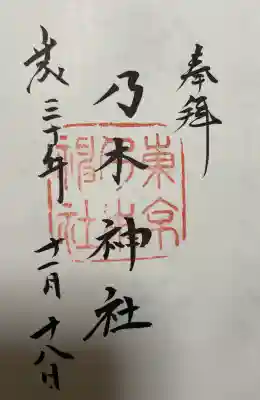 奉拝
乃木神社
平成三十年十一月十八日
東京乃木神社